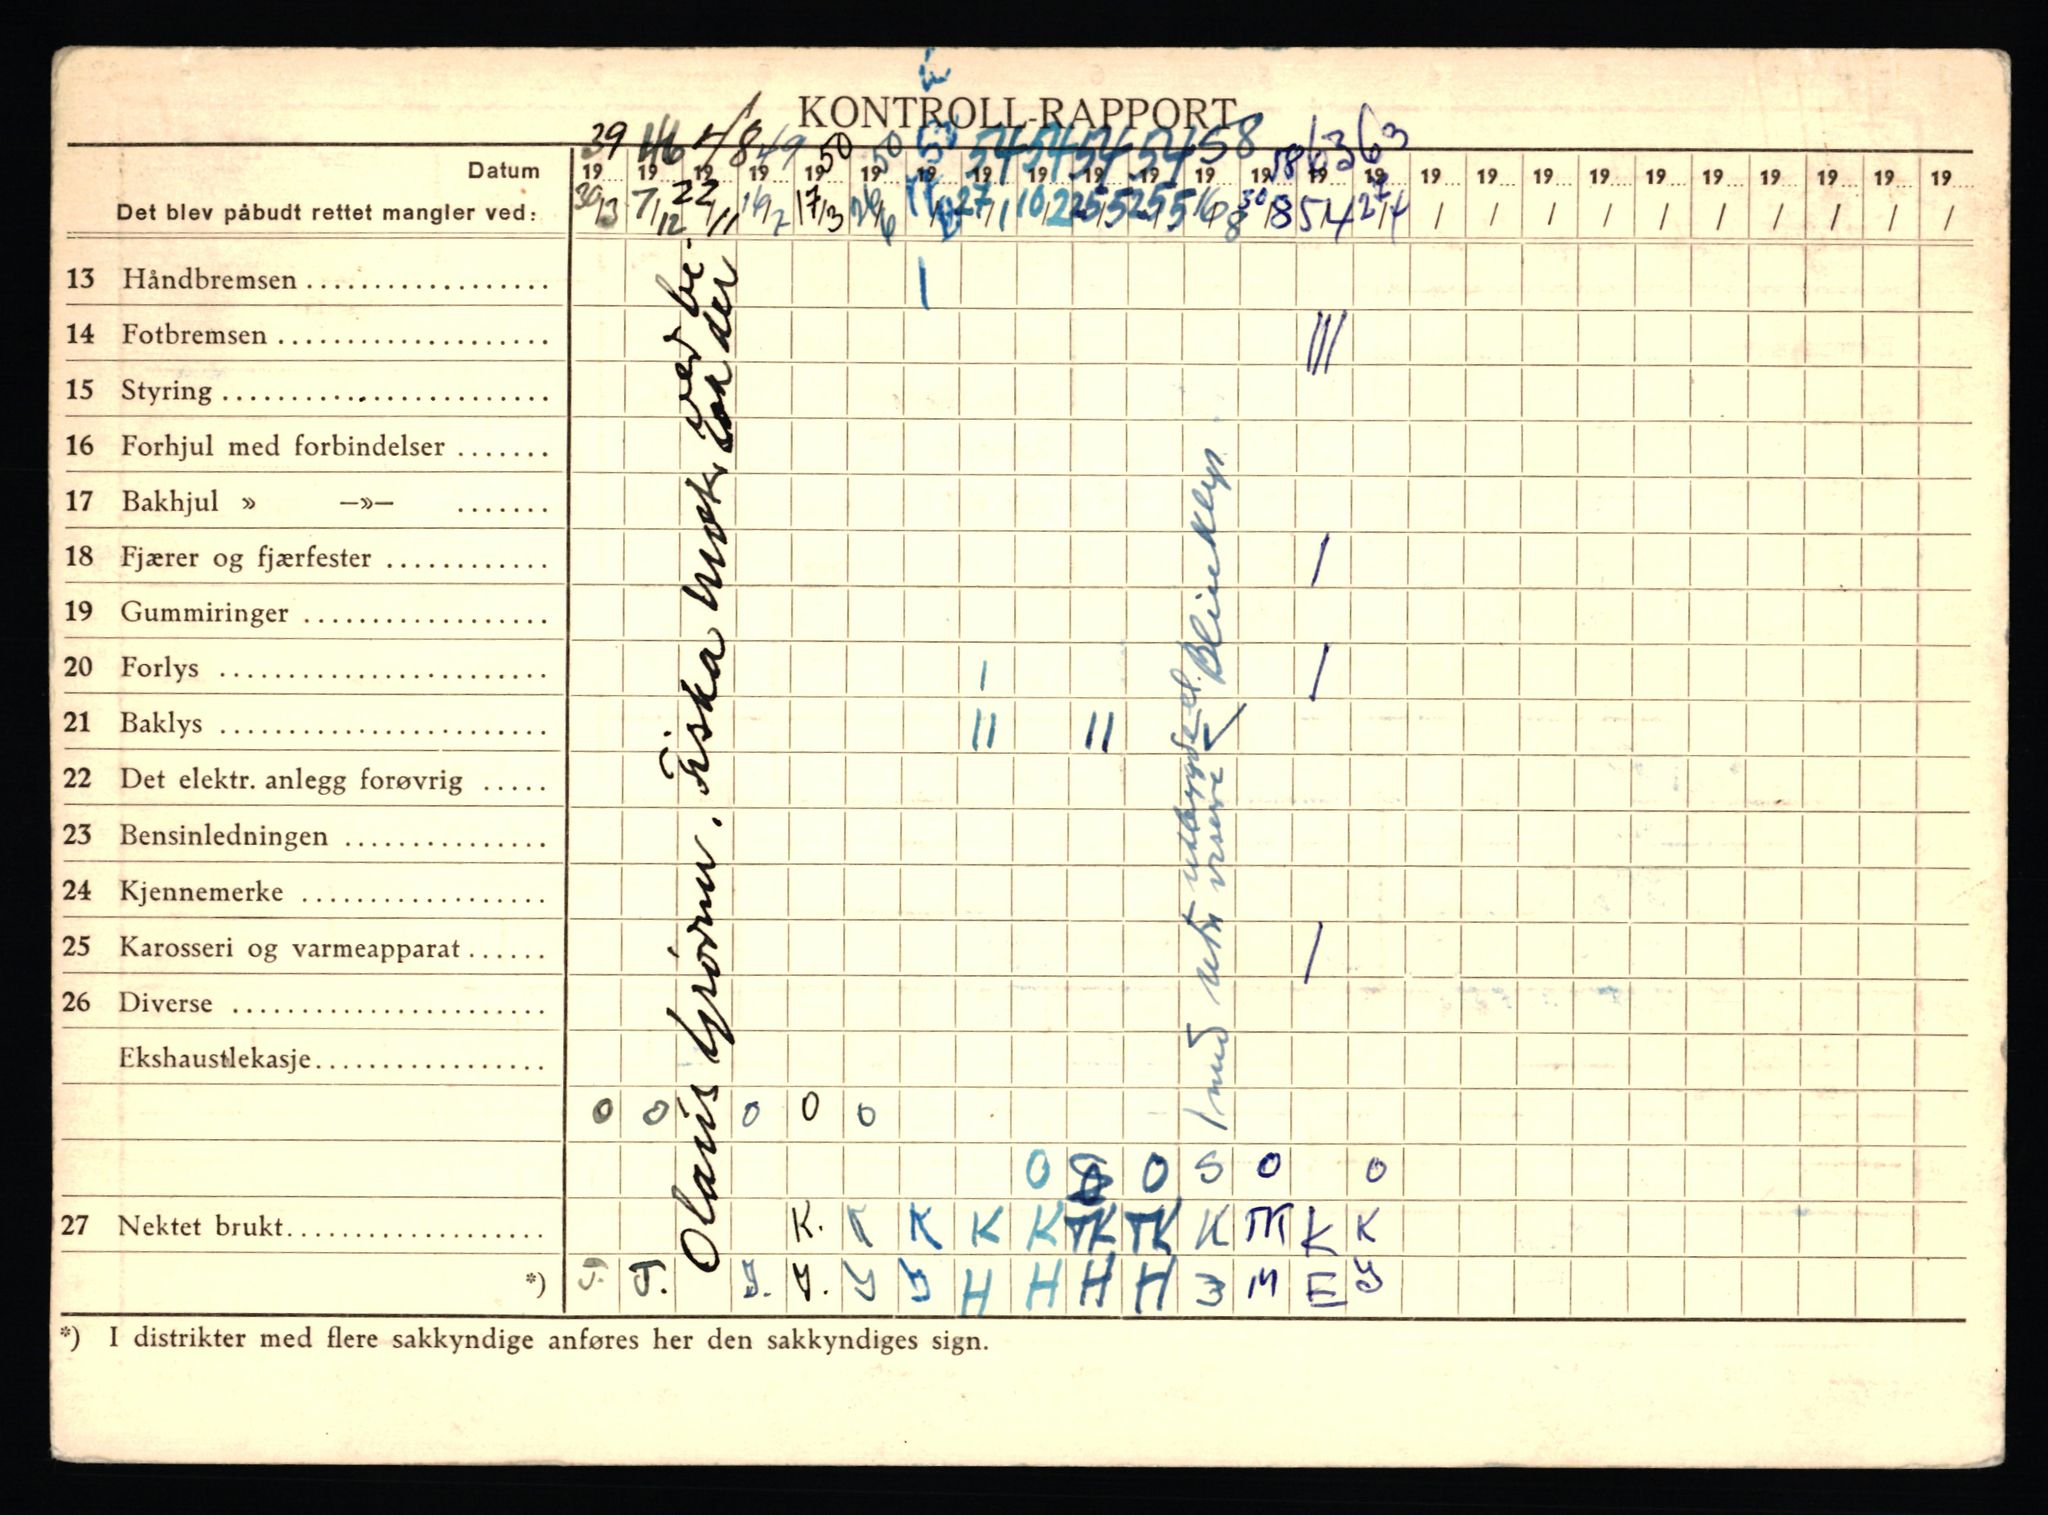 KONTROLL-RAPPORT
Datum 39 46 48 49 50 50 53 54 54 54 54 58 58 63 63
19 19 19 19 19 19 19 19 19 19 19 19 19 19 19 19 19 19 19 19 19 19 19 19 19
Det blev påbudt rettet mangler ved: 30/3 7/12 22/11 17/3 27/1 10/2 25/5 25/5 16/8 30/8 5/4 / / / / / / / / / /
13 Håndbremsen |
14 Fotbremsen |||
15 Styring
16 Forhjul med forbindelser
17 Bakhjul » —»—
18 Fjærer og fjærfester /
19 Gummiringer
20 Forlys | /
21 Baklys || ||
22 Det elektr. anlegg forøvrig
23 Bensinledningen
24 Kjennemerke
25 Karosseri og varmeapparat /
26 Diverse
Ekshaustlekasje
0 0 0 0 0
0 0 S 0 0
27 Nektet brukt K. K K K K TK TK K K K
*) T. T. J. J. J J H H H H M E J
Olaus
Blinklys
*) I distrikter med flere sakkyndige anføres her den sakkyndiges sign.